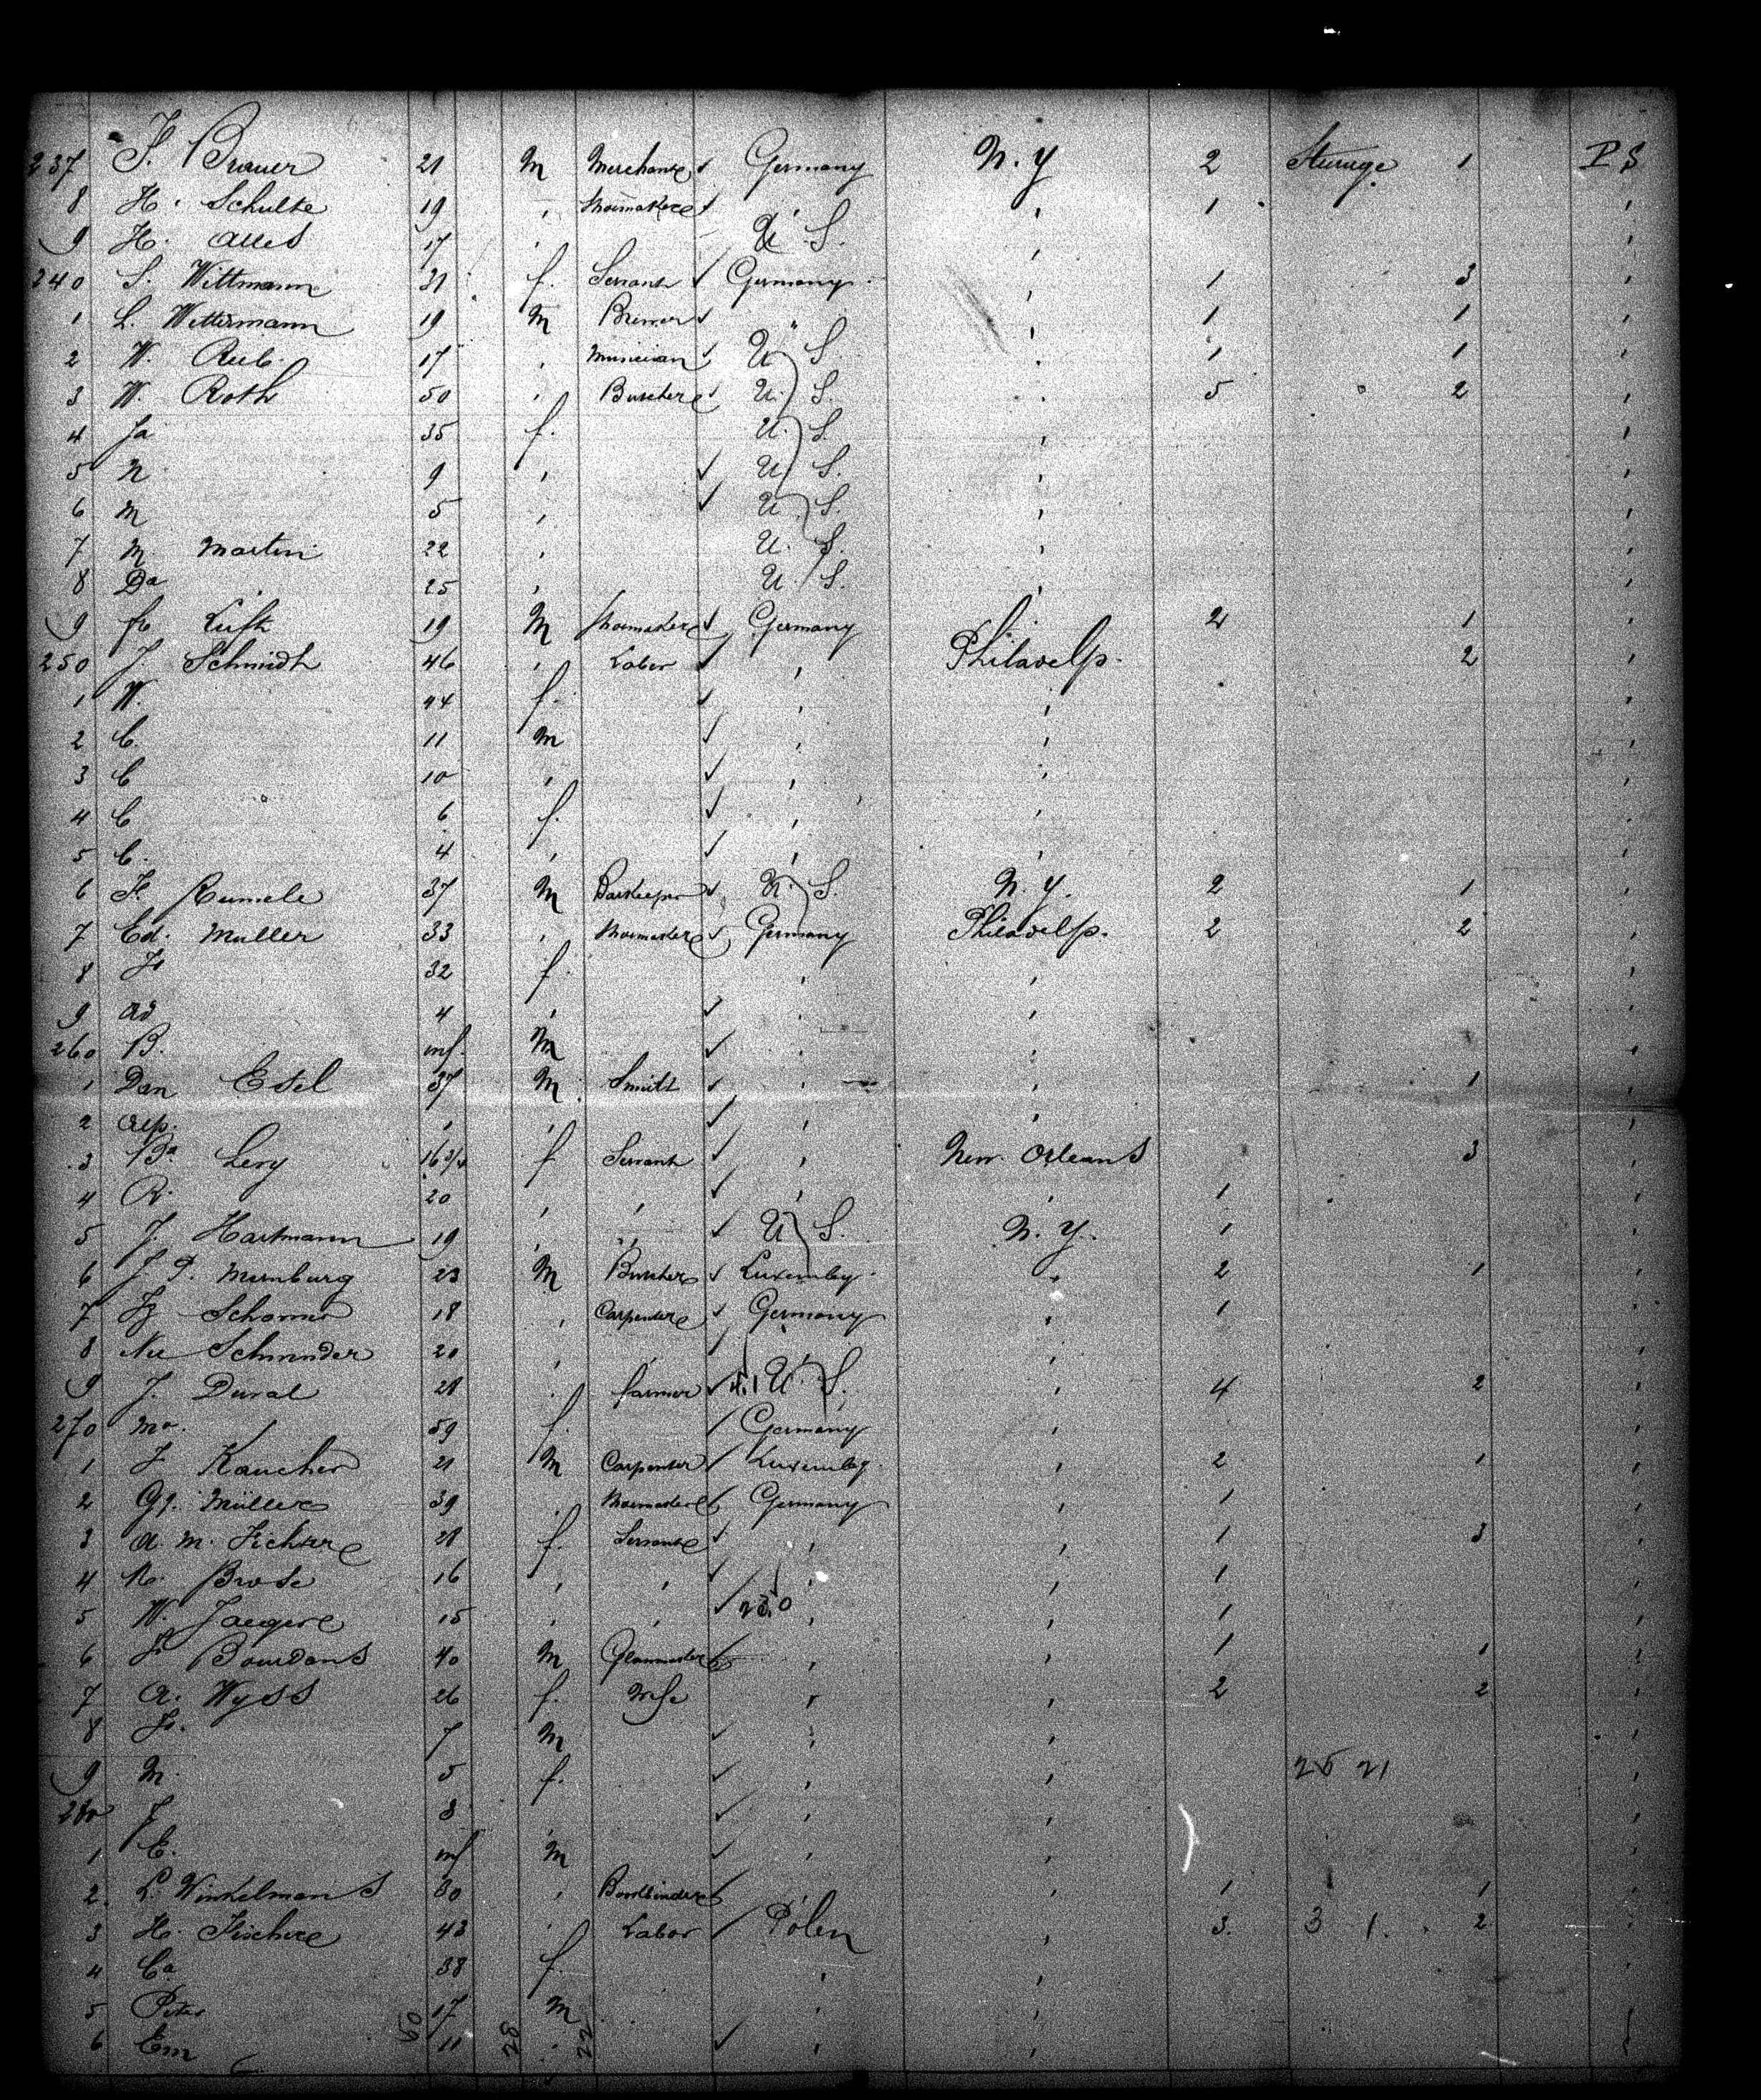 237 F. Brauer 21 M Merchant Germany N. Y 2 Steerage 1 P S
8 H. Schulte 19 , Shoemaker , , 1 ,
9 H. Alles 17 , U. S. , ,
240 S. Wittmann 31 f. Servant Germany , 1 3 ,
1 L. Wettermann 19 M Brewer " , 1 1 ,
2 W. Rub. 17 , Musician U S , 1 1 ,
3 W. Roth 50 , Butcher U. S. , 5 2 ,
4 Ja 35 f. U. S. , ,
5 N 9 , U S. , ,
6 M 5 , U S. , ,
7 M. Martin 22 , U. S. , ,
8 Da 25 , U. S. , ,
9 Fr Luft 19 M Shoemaker Germany , 2 1 ,
250 J. Schmidt 46 , Labor , Philadelp. 2 ,
1 W. 44 f. , , ,
2 C. 11 M , , ,
3 C 10 , , , ,
4 C 6 f. , , ,
5 C. 4 , , , ,
6 F. Rumele 37 M Barkeeper U. S. N. Y. 2 1 ,
7 Ed. Muller 33 , Shoemaker Germany Philadelp. 2 2 ,
8 Fr 32 f. , , ,
9 Ad 4 , , , ,
260 B. inf. M , , ,
1 Dan Esel 37 M. Smith , , 1 ,
2 Alp. , , , , ,
3 Ba Levy 16 3/4 f Servant , New Orleans 3 ,
4 R. 20 , , , , 1 ,
5 J. Hartmann 19 , , U S. N. Y. 1 ,
6 J. P. Mumburg 23 M Butcher Luxembg. , 2 1 ,
7 Schomer 18 , Carpenter Germany , 1 ,
8 Nic Schneider 20 , , , , ,
9 J. Duval 28 . farmer U. S. , 4 2 ,
270 Ma. 59 f. Germany , ,
1 J Kaucher 21 M Carpenter Luxembg. , 2 1 ,
2 Müller 39 . Shoemaker Germany , 1 ,
3 A. M. Fichter 28 f. Servant , , 1 3 ,
4 Brose 16 , , , , 1 ,
5 W. Jaeger 15 , , , , 1 ,
6 Fr Bourdons 40 M , , 1 1 ,
7 A. Wyss 26 f. Wife , , 2 2 ,
8 Fr. 7 M , , ,
9 M. 5 f. , , 25 21 ,
280 J 3 , , , ,
1 E. inf M , , ,
2. L. Winkelmans 30 , Bookbinder , , 1 1 ,
3 H. Fischer 43 , Labor Polen , 3. 3 1. 2 ,
4 Ca 38 f. , , ,
5 Peter 17 M , , ,
6 Em 11 . , , ,
50 28 22